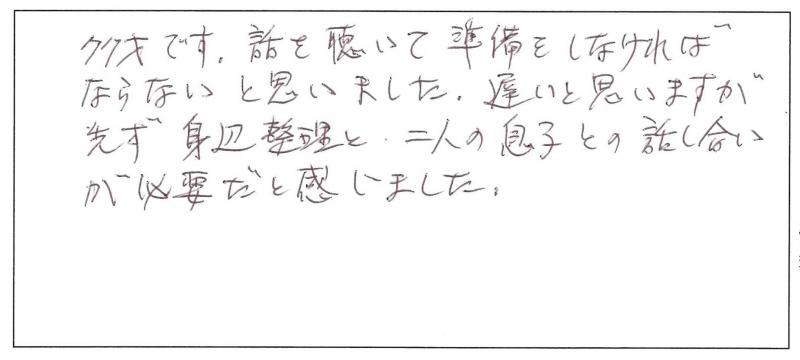 77才です。話を聴いて準備をしなければ
ならないと思いました。遅いと思いますが
先ず身辺整理と、二人の息子との話し合い
が必要だと感じました。